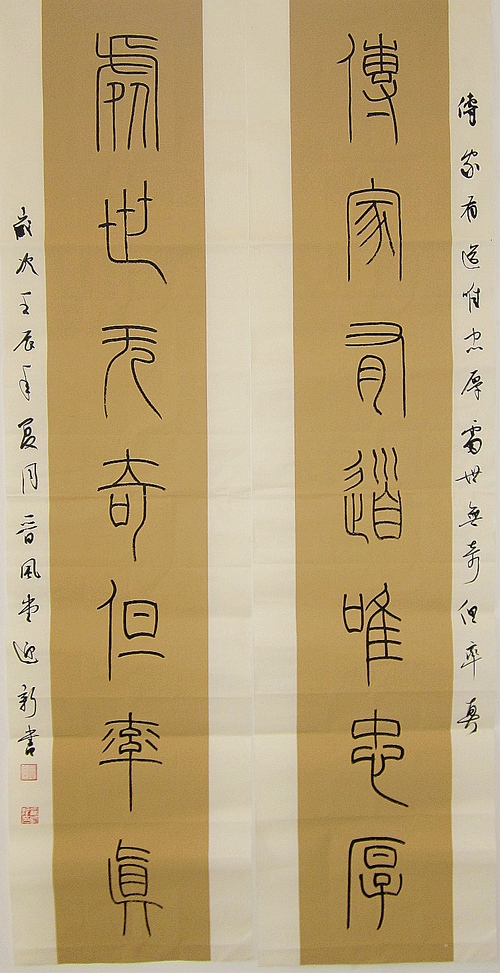 傳家有道唯忠厚處世無奇但率真
傳家有道唯忠厚
處世无奇但率真
歲次壬辰年夏月晋風堂迎新書